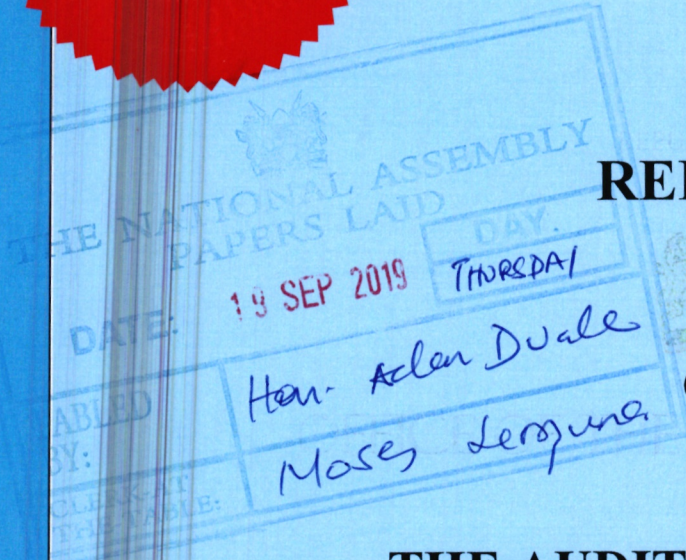 THE NATIONAL ASSEMBLY
PAPERS LAID
DATE: 19 SEP 2019
DAY.
THURSDAY
TABLED BY: Hon. Aden Duale
CLERK AT THE TABLE: Moses Lemuna
RE
THE AUDIT